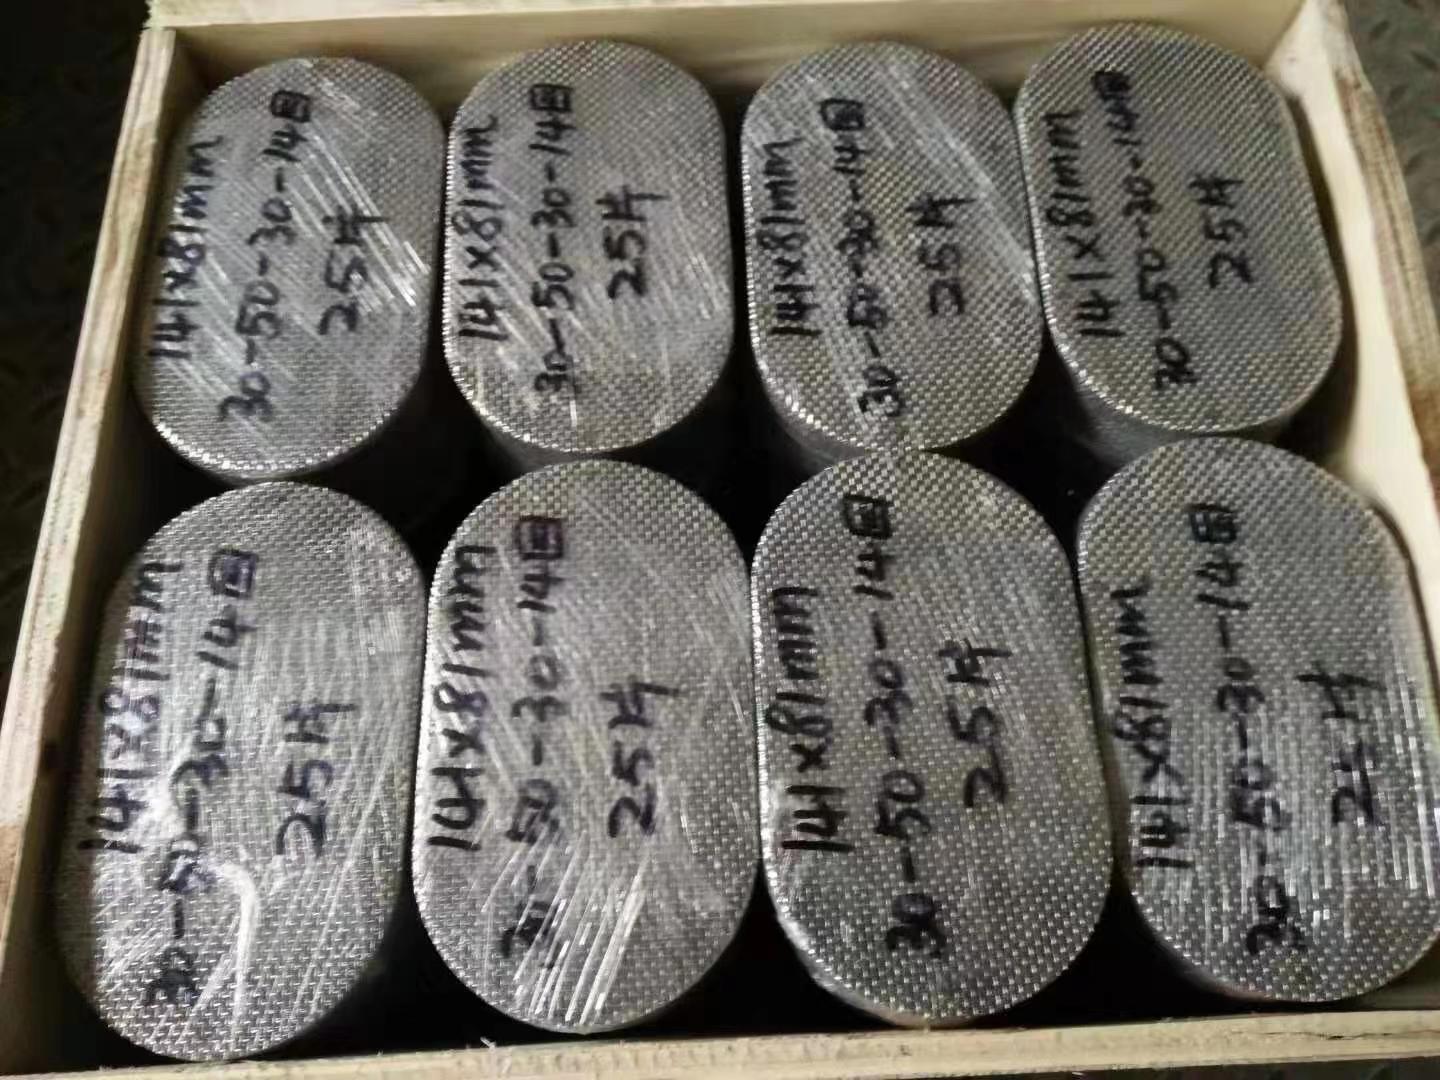 141x81mm
30-50-30-14目
25片
141x81mm
30-50-30-14目
25片
141x81mm
30-50-30-14目
25片
141x81mm
30-50-30-14目
25片
141x81mm
30-50-30-14目
25片
141x81mm
30-50-30-14目
25片
141x81mm
30-50-30-14目
25片
141x81mm
30-50-30-14目
25片